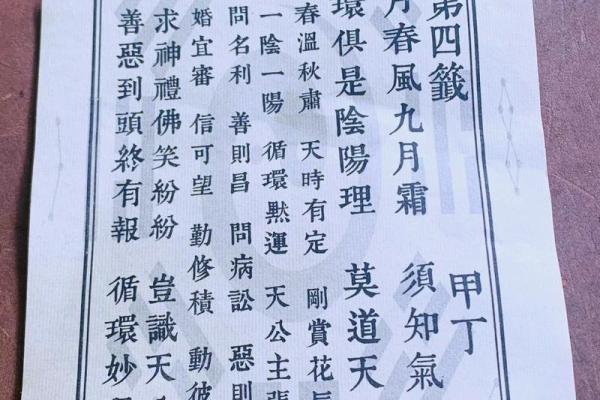 第四籤 甲丁
月春風九月霜 須知氣
環俱是陰陽理 莫道天
春溫秋肅 天時有定 剛賞花
一陰一陽 循環黙運 天公主張
問名利 善則昌 問病訟 惡則
婚宜審 信可望 勤修積 動彼
求神禮佛笑紛紛 豈識天
善惡到頭終有報 循環妙